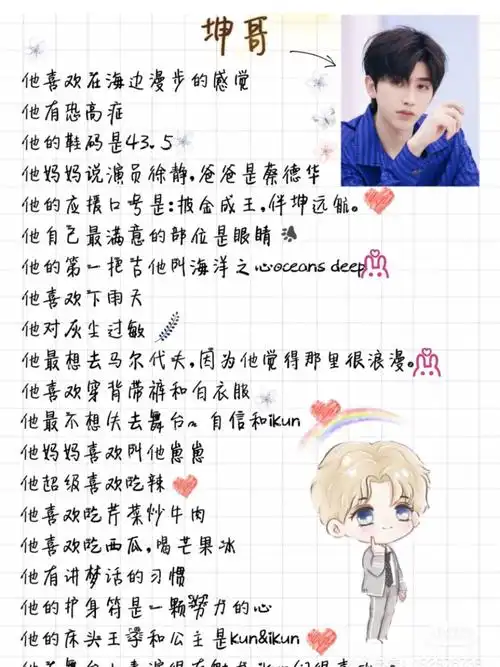 坤哥
他喜欢在海边漫步的感觉
他有恐高症
他的鞋码是43.5
他妈妈说演员徐静,爸爸是蔡德华
他的应援口号是:披金成王,伴坤远航。
他自己最满意的部位是眼睛
他的第一把吉他叫海洋之心oceans deep
他喜欢下雨天
他对灰尘过敏
他最想去马尔代夫,因为他觉得那里很浪漫。
他喜欢穿背带裤和白衣服
他最不想失去舞台~ 自信和ikun
他妈妈喜欢叫他崽崽
他超级喜欢吃辣
他喜欢吃芹菜炒牛肉
他喜欢吃西瓜,喝芒果冰
他有讲梦话的习惯
他的护身符是一颗努力的心
他的床头王子和公主是kun&ikun